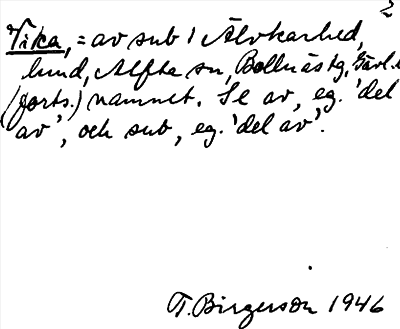 2
Vika, = av sub 1 Älvkarhed,
lund, Alfta sn, Bollnäs tg, Gävl.
(forts.) namnet. Se av, eg. 'del
av', och sub, eg. 'del av'.
T. Birgerson 1946